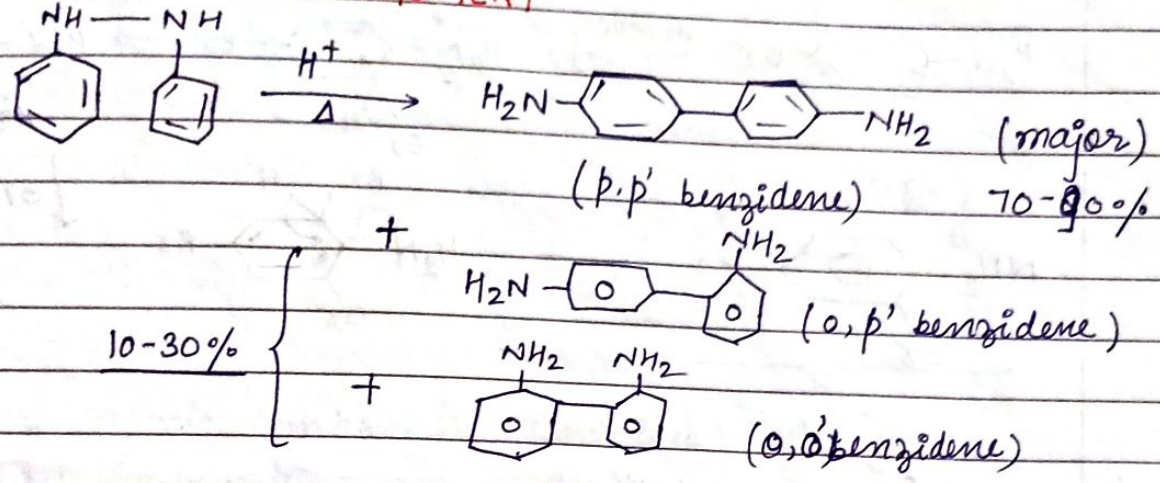 NH — NH
H⁺
Δ
H₂N
NH₂
(major)
(p.p' benzidene)
70-90%
+
NH₂
H₂N
(o, p' benzidene)
10-30%
NH₂ NH₂
+
(o,o' benzidene)